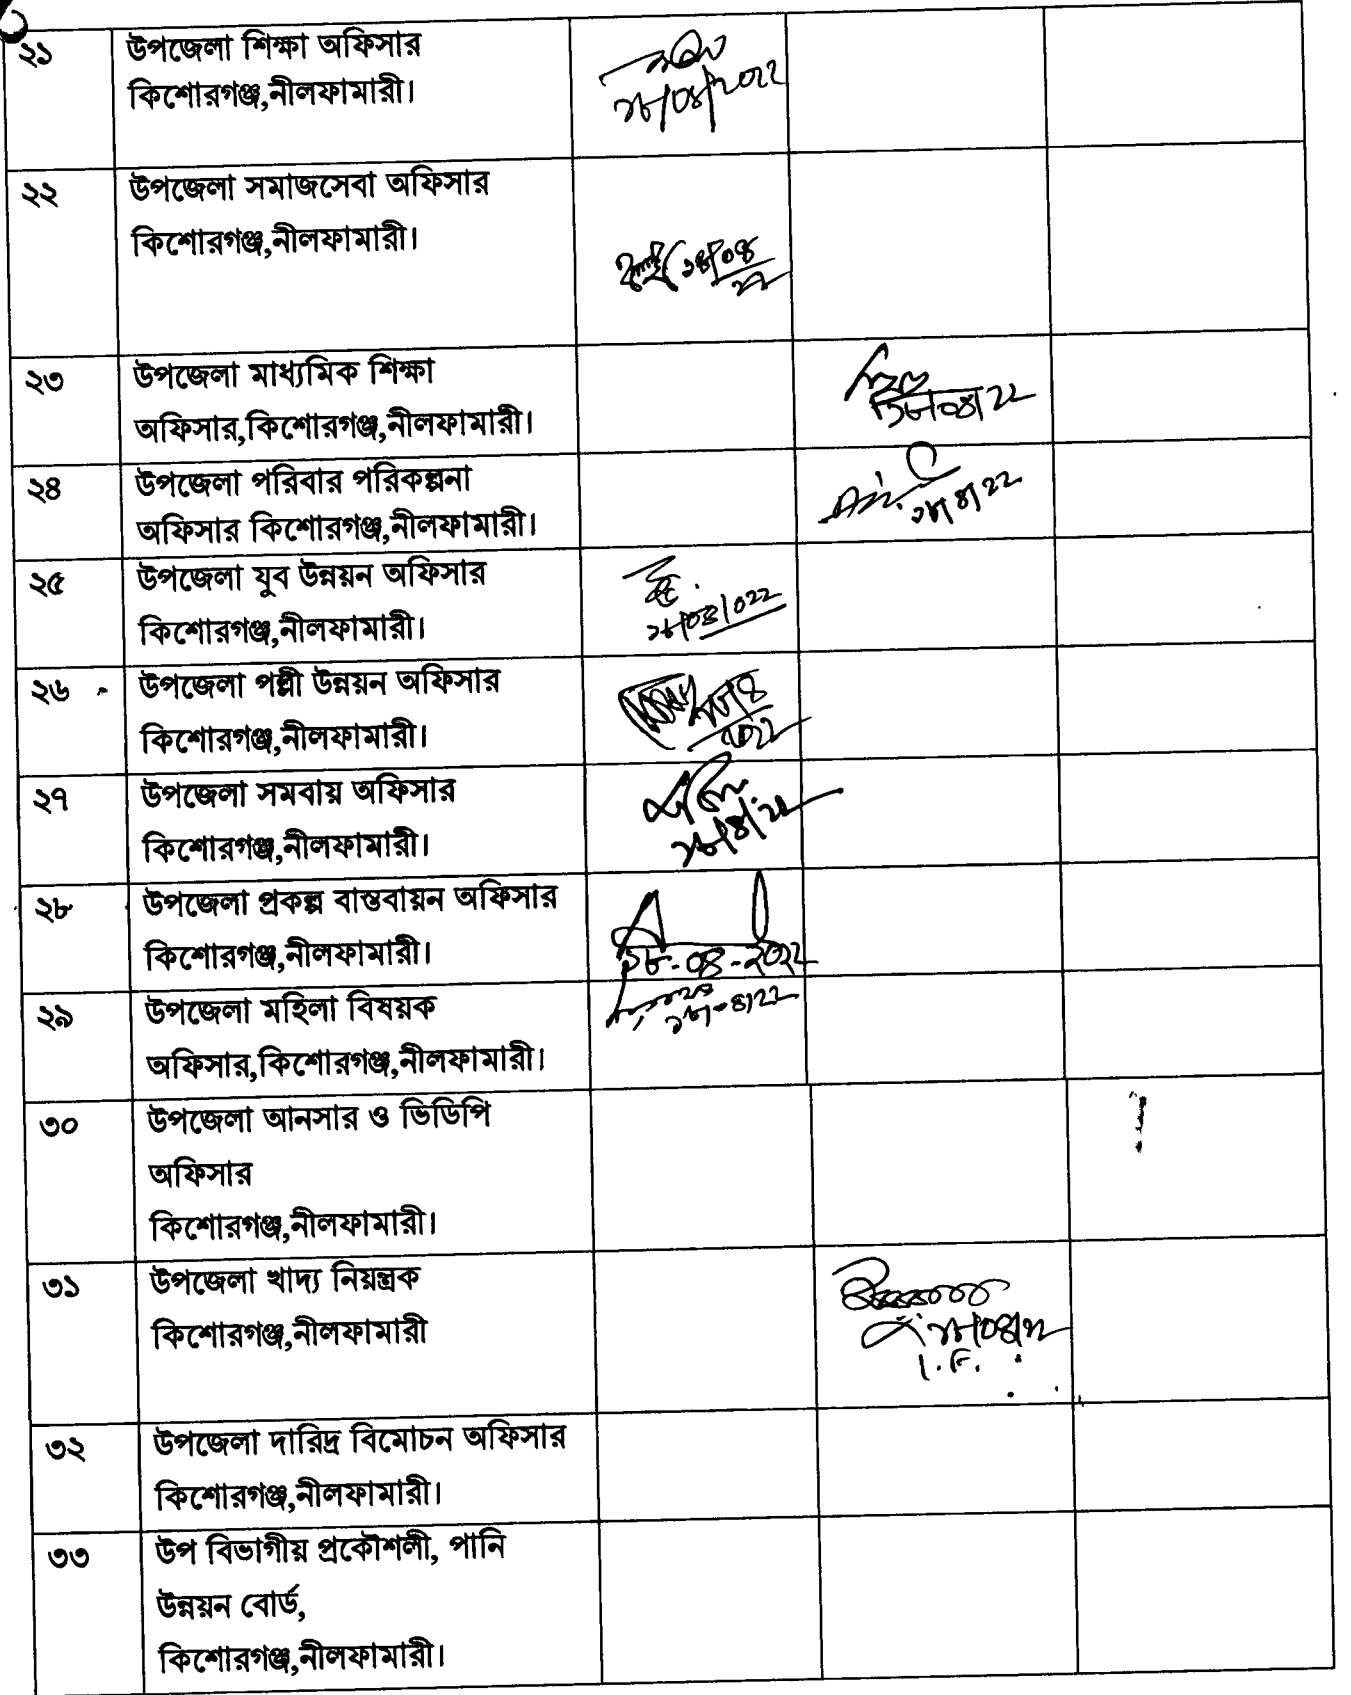 ২১ উপজেলা শিক্ষা অফিসার
কিশোরগঞ্জ,নীলফামারী।
২৮/০৪/২০২২
২২ উপজেলা সমাজসেবা অফিসার
কিশোরগঞ্জ,নীলফামারী।
২৮/০৪
২২
২৩ উপজেলা মাধ্যমিক শিক্ষা
অফিসার,কিশোরগঞ্জ,নীলফামারী।
২৮/০৪/২২
২৪ উপজেলা পরিবার পরিকল্পনা
অফিসার কিশোরগঞ্জ,নীলফামারী।
২৮/৪/২২
২৫ উপজেলা যুব উন্নয়ন অফিসার
কিশোরগঞ্জ,নীলফামারী।
২৮/০৪/০২২
২৬ উপজেলা পল্লী উন্নয়ন অফিসার
কিশোরগঞ্জ,নীলফামারী।
২৮/৪
২০২২
২৭ উপজেলা সমবায় অফিসার
কিশোরগঞ্জ,নীলফামারী।
২৮/৪/২২
২৮ উপজেলা প্রকল্প বাস্তবায়ন অফিসার
কিশোরগঞ্জ,নীলফামারী।
২৮-০৪-২০২২
২৯ উপজেলা মহিলা বিষয়ক
অফিসার,কিশোরগঞ্জ,নীলফামারী।
২৮-৪/২২
৩০ উপজেলা আনসার ও ভিডিপি
অফিসার
কিশোরগঞ্জ,নীলফামারী।
৩১ উপজেলা খাদ্য নিয়ন্ত্রক
কিশোরগঞ্জ,নীলফামারী
২৮/০৪/২২
৩২ উপজেলা দারিদ্র বিমোচন অফিসার
কিশোরগঞ্জ,নীলফামারী।
৩৩ উপ বিভাগীয় প্রকৌশলী, পানি
উন্নয়ন বোর্ড,
কিশোরগঞ্জ,নীলফামারী।